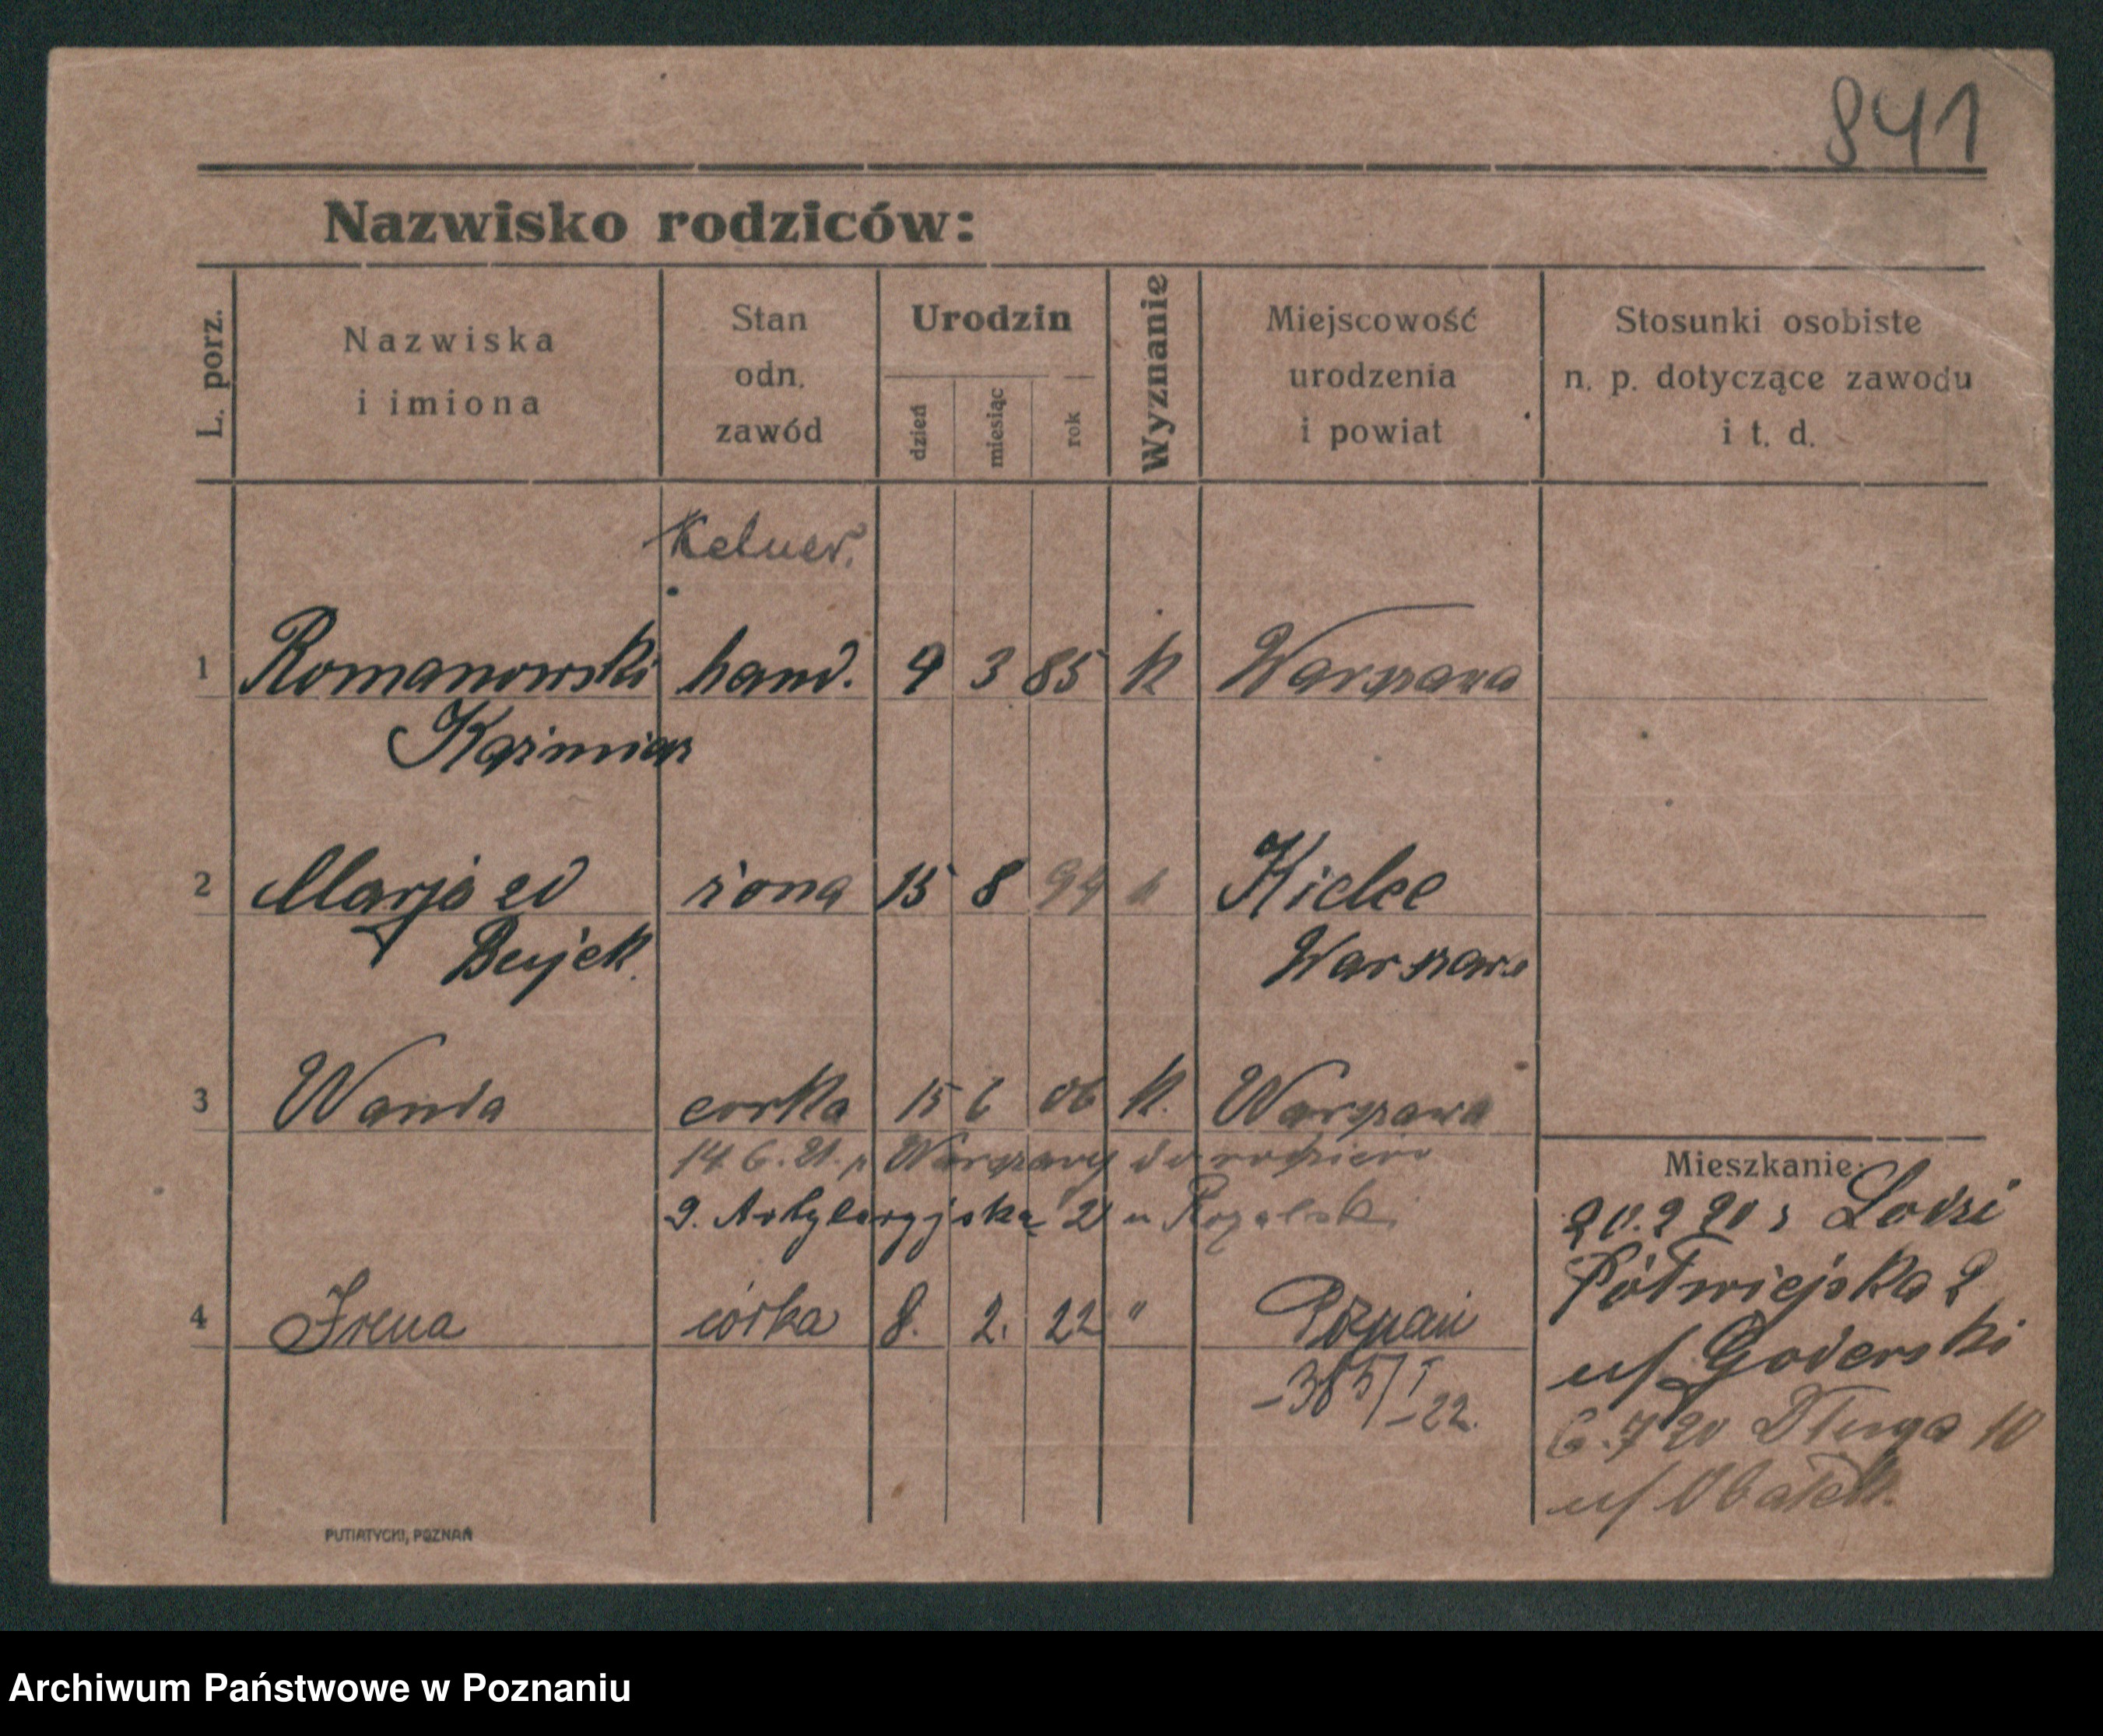 841
Nazwisko rodziców:
L. porz.
Nazwiska
i imiona
Stan
odn.
zawód
Urodzin
dzień
miesiąc
rok
Wyznanie
Miejscowość
urodzenia
i powiat
Stosunki osobiste
n. p. dotyczące zawodu
i t. d.
Kelner.
1 Romanowski hand. 9 3 85 k Warszawa
Kazimierz
2 Marja żona 15 8 94 k Kielce
Warszawa
3 Wanda corka 15 6 06 k. Warszawa
14 6. 21. z Warszawy do
9. Artyleryjska 21 u
4 Irena córka 8. 2. 22 " Poznań
-385/I-22.
Mieszkanie:
20.2 20 z Lodzi
Półwiejska 2
u/ Goderski
6.7 20 Długa 10
u/
PUTIATYCKI, POZNAŃ
Archiwum Państwowe w Poznaniu